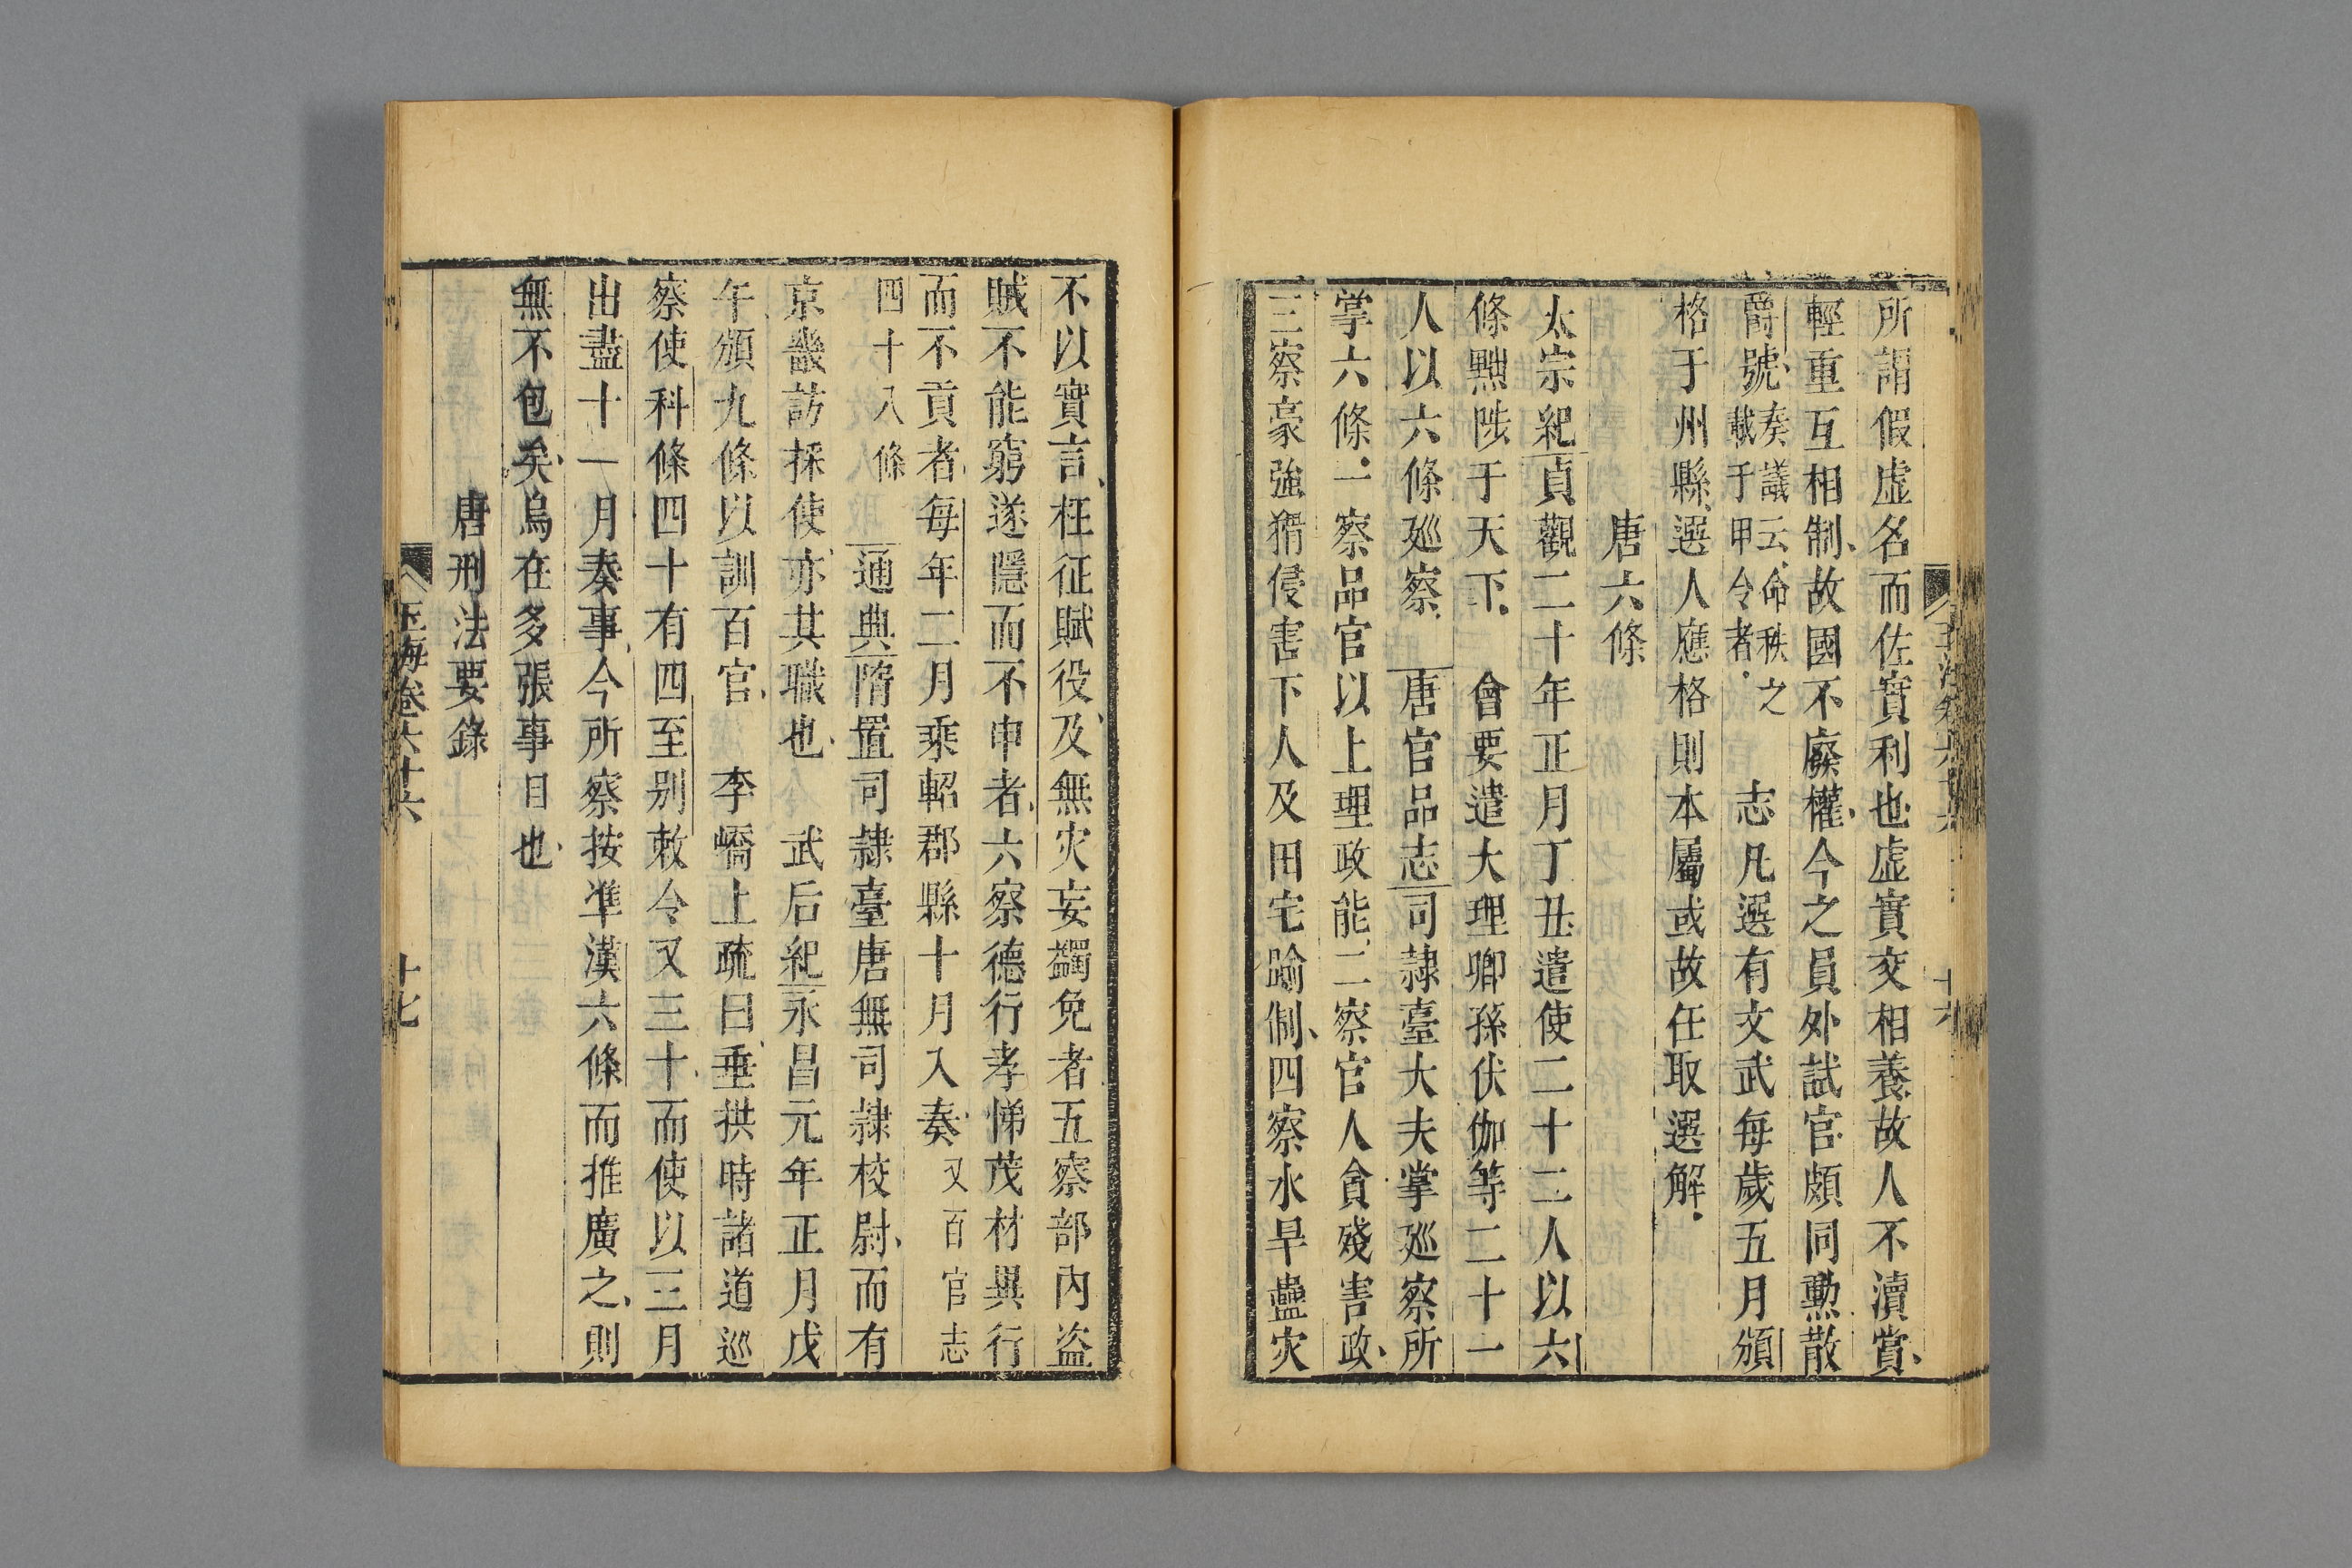 玉海卷六十六 十六
所謂假虛名而佐實利也虛實交相養故人不瀆賞
輕重互相制故國不廢權今之員外試官頗同勲散
爵號奏議云命秩之載于甲令者 志凡選有文武每歲五月頒
格于州縣選人應格則本屬或故任取選解
唐六條
太宗紀貞觀二十年正月丁丑遣使二十二人以六
條黜陟于天下 會要遣大理卿孫伏伽等二十一
人以六條廵察 唐官品志司隷臺大夫掌廵察所
掌六條一察品官以上理政能二察官人貪殘害政
三察豪強猾侵害下人及田宅踰制四察水旱蠱灾
不以實言枉征賦役及無灾妄蠲免者五察部內盗
賊不能窮逐隱而不申者六察德行孝悌茂材異行
而不貢者每年二月乘軺郡縣十月入奏又百官志
四十八條 通典隋置司隷臺唐無司隷校尉而有
京畿訪採使亦其職也 武后紀永昌元年正月戊
午頒九條以訓百官 李嶠上疏曰垂拱時諸道巡
察使科條四十有四至别敕令又三十而使以三月
出盡十一月奏事今所察按準漢六條而推廣之則
無不包矣烏在多張事目也
唐刑法要錄
玉海卷六十六 十七